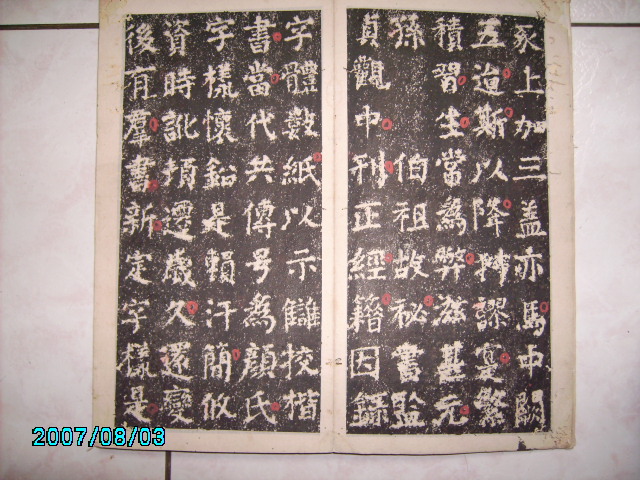 豕上加三盖亦馬中闕
五迨斯以降舛謬寔繁
積習生常爲弊滋甚元
孫 伯祖故秘書監
貞觀中刊正經籍因錄
字體數紙以示讎挍楷
書當代共傳号爲顔氏
字樣懷鈆是賴汗簡攸
資時訛頓遷歲久還變
後有羣書新定字樣是
2007/08/03